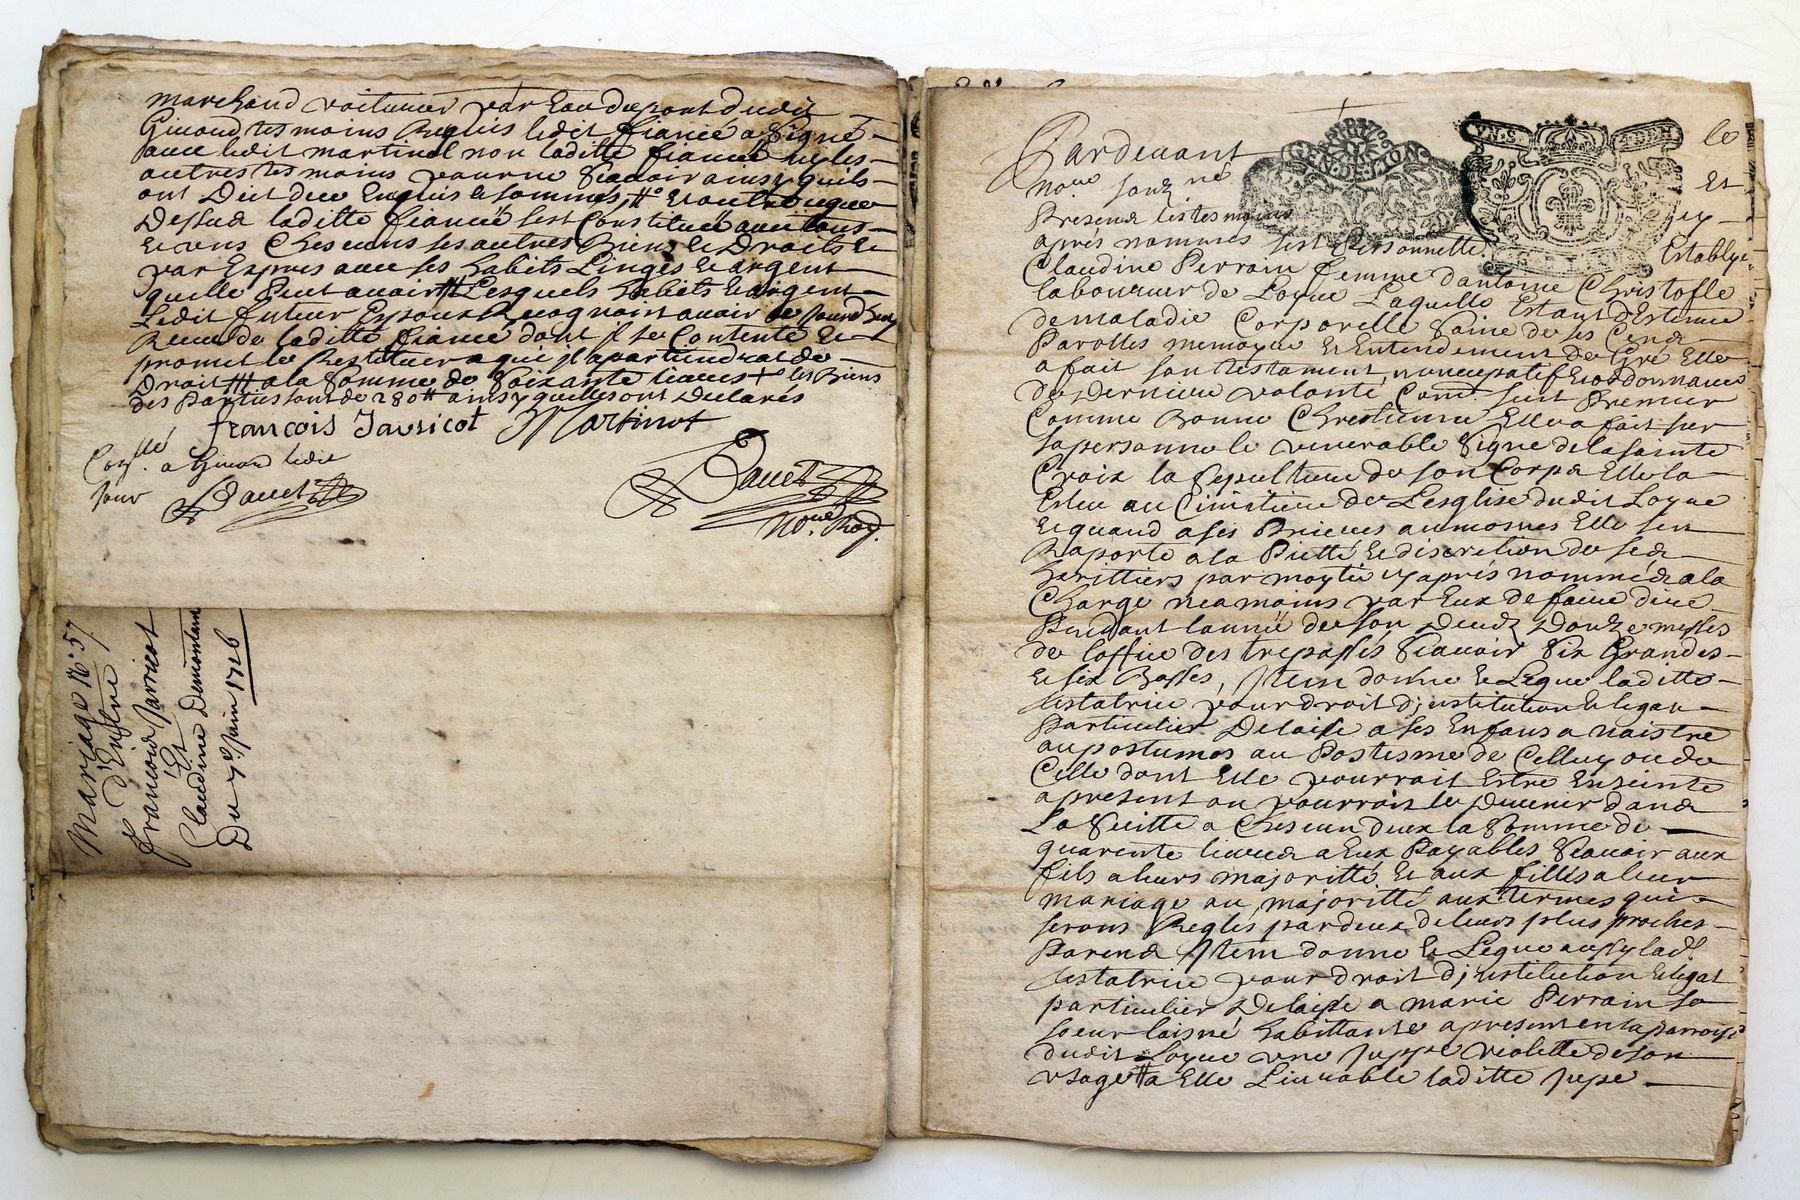 marchand voiturier par Eau du pont dudit
Givord tesmoins Requis ledit fiancé a Signé
avec ledit martinot non laditte fiancée ny les
autres tesmoins pour ne Scavoir ainsy quils
ont Dict de ce Enquis et sommés,
Dessus laditte fiancée sest Constituée avec tous
et uns Chescuns ses autres Biens et Droits et
par Expres avec ses habits Linges et argent
quelle Peut avoir Lesquels habits et argent
Ledit futeur Espoux Recognoit avoir ce jourdhuy
Receu de laditte fiancée dont il se Contente et
promet les Restituer a qui il apartiendrat de
Droit a la Somme de Soixante livres les Biens
des Parties sont de 280 ainsy quelles ont Declarés
françois Jarricot Martinot
a Givord ledit
jour
Mariage N.° 57
d'Entre
francois Jarricot
Et
Claudine
Du 7e Juin 1716
GEN. DE LYON
Pardevant le
no.re souz né Et
Presens les tesmoins
après nommés sest Personnelle. Establye
Claudine Perrain femme dantoine Christofle
laboureur de Loyve Laquelle Estant destenue
de maladie Corporelle Saine de ses Cens
Parolles memoyre et Entendement de Gré Elle
a fait son testament nuncupatif et ordonnance
de Derniere volonté Comme suit Premier
Comme Bonne Chrestienne Elle a fait sur
sa personne le venerable Signe de la sainte
Croix la Sepulture de son Corps Elle la
Eslue au Cimitiere de Lesglise dudit Loyve
et quand a ses Prieres aumosnes Elle sen
Raporte a la Pietté et discretion de ses
herittiers par moytié cy après nommés a la
Charge neamoins par Eux de faire dire
Pendant lannée de son Deuz Douze messes
de loffice des trepassés Scavoir Six Grandes
et six Basses, Item donne et Legue laditte
testatrice pour droit d'institution et legat
Particulier Delaisse a ses Enfans a naistre
au postumes au Postesme de Celluy ou de
Celle dont Elle pourrait Estre Enseinte
apresent ou pourrois le Devenir dans
La Suitte a Chescun deux la Somme de
quarente livres a Eux Payables Scavoir aux
fils a leurs majoritté et aux filles a leur
mariage ou majoritté aux termes qui
serons Reglés par deux de leurs plus proches
Parens Item donne et Legue aussy lad.
testatrice pour droit d'institution et legat
particulier Delaisse a marie Perrain sa
soeur laisné habittante apresent en la parroisse
dudit Loyve une Juppe violette de son
usage a Elle Livrable laditte jupe